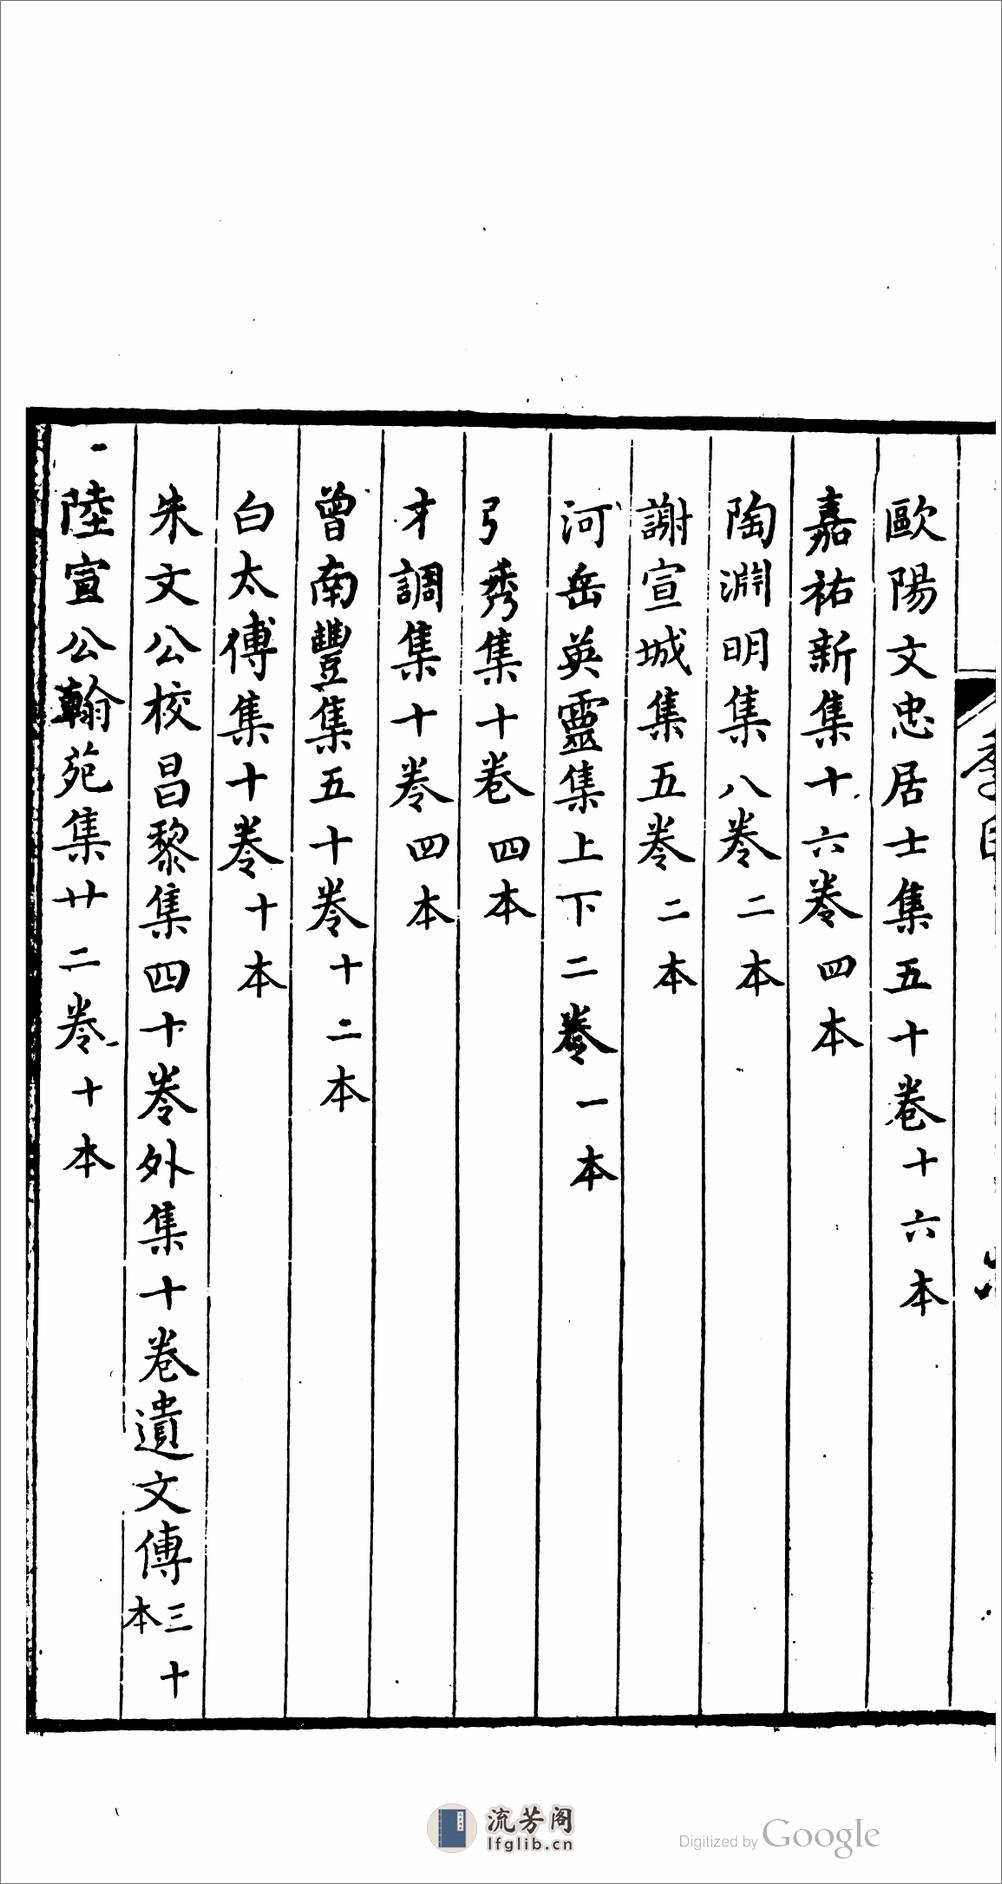 歐陽文忠居士集五十卷十六本
嘉祐新集十六卷四本
陶淵明集八卷二本
謝宣城集五卷二本
河岳英靈集上下二卷一本
弓秀集十卷四本
才調集十卷四本
曾南豐集五十卷十二本
白太傅集十卷十本
朱文公校昌黎集四十卷外集十卷遺文傳三十本
陸宣公翰苑集廿二卷十本
流芳阁
lfglib.cn
Digitized by Google